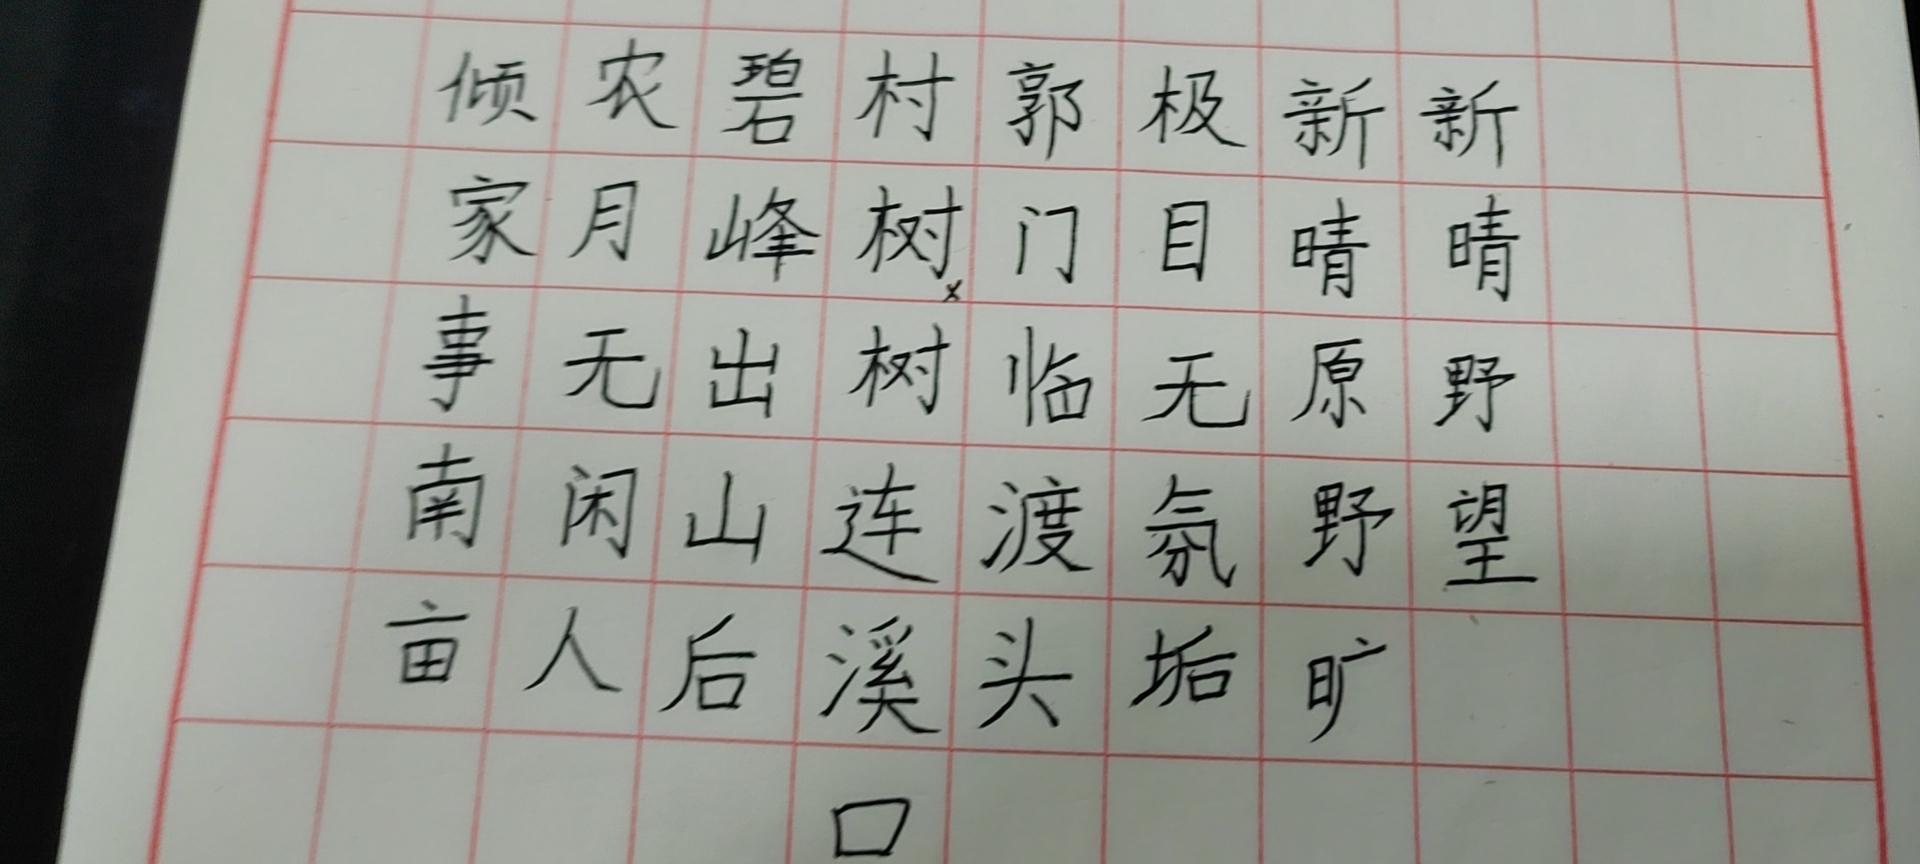 新晴野望
新晴原野旷
极目无氛垢
郭门临渡头
村树树连溪口
碧峰出山后
农月无闲人
倾家事南亩